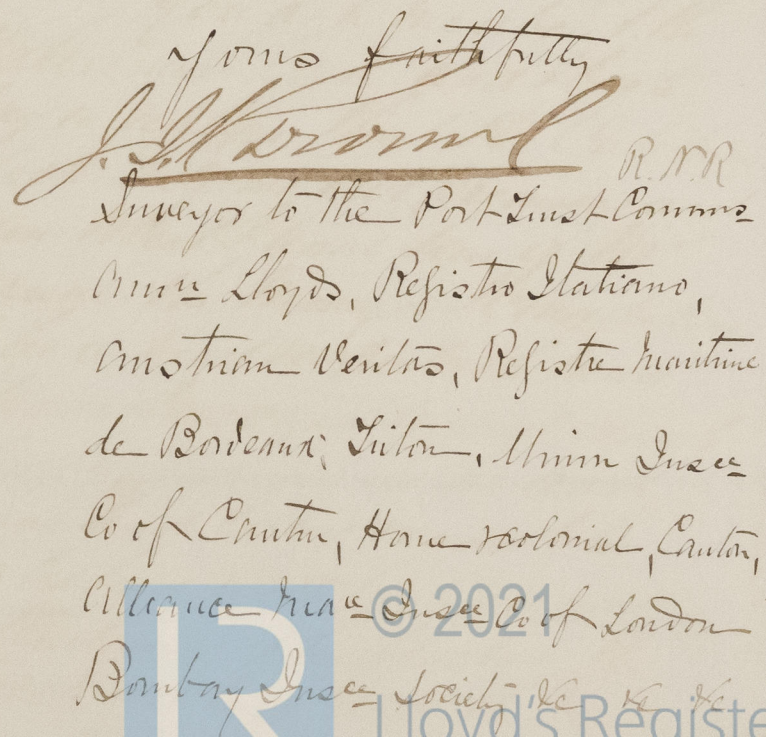 Yours faithfully
R.N.R
Surveyor to the Port Trust Comms
Lloyds, Registro Italiano,
Austrian Veritas, Registre Maritime
de Bordeaux, Triton, Union Insce
Co of Canton, Home & Colonial, Canton,
Alliance Mae Insce Co of London
Bombay Insce Society &c &c &c
© 2021
LR
Lloyd's Registe